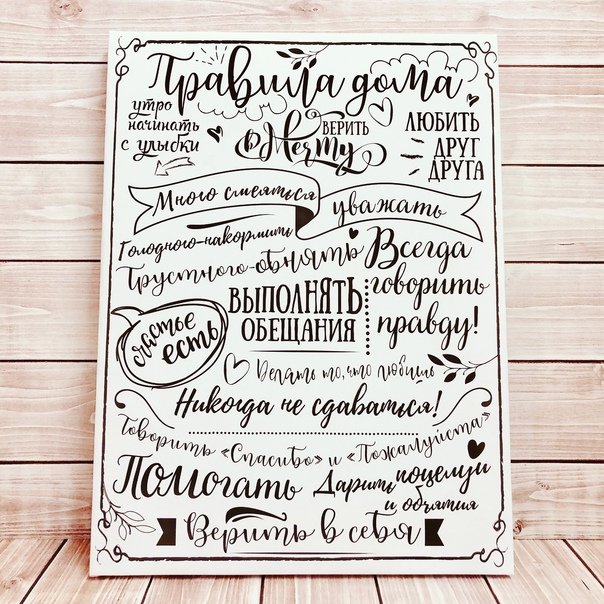 Правила дома
утро
начинать
с улыбки
ВЕРИТЬ
в Мечту
ЛЮБИТЬ
ДРУГ
ДРУГА
Много смеяться
уважать
Голодного-накормить
Грустного-обнять
Всегда
говорить
правду!
ВЫПОЛНЯТЬ
ОБЕЩАНИЯ
счастье
есть
Делать то, что любишь
Никогда не сдаваться!
Говорить «Спасибо» и «Пожалуйста»
Помогать
Дарить поцелуи
и объятия
Верить в себя